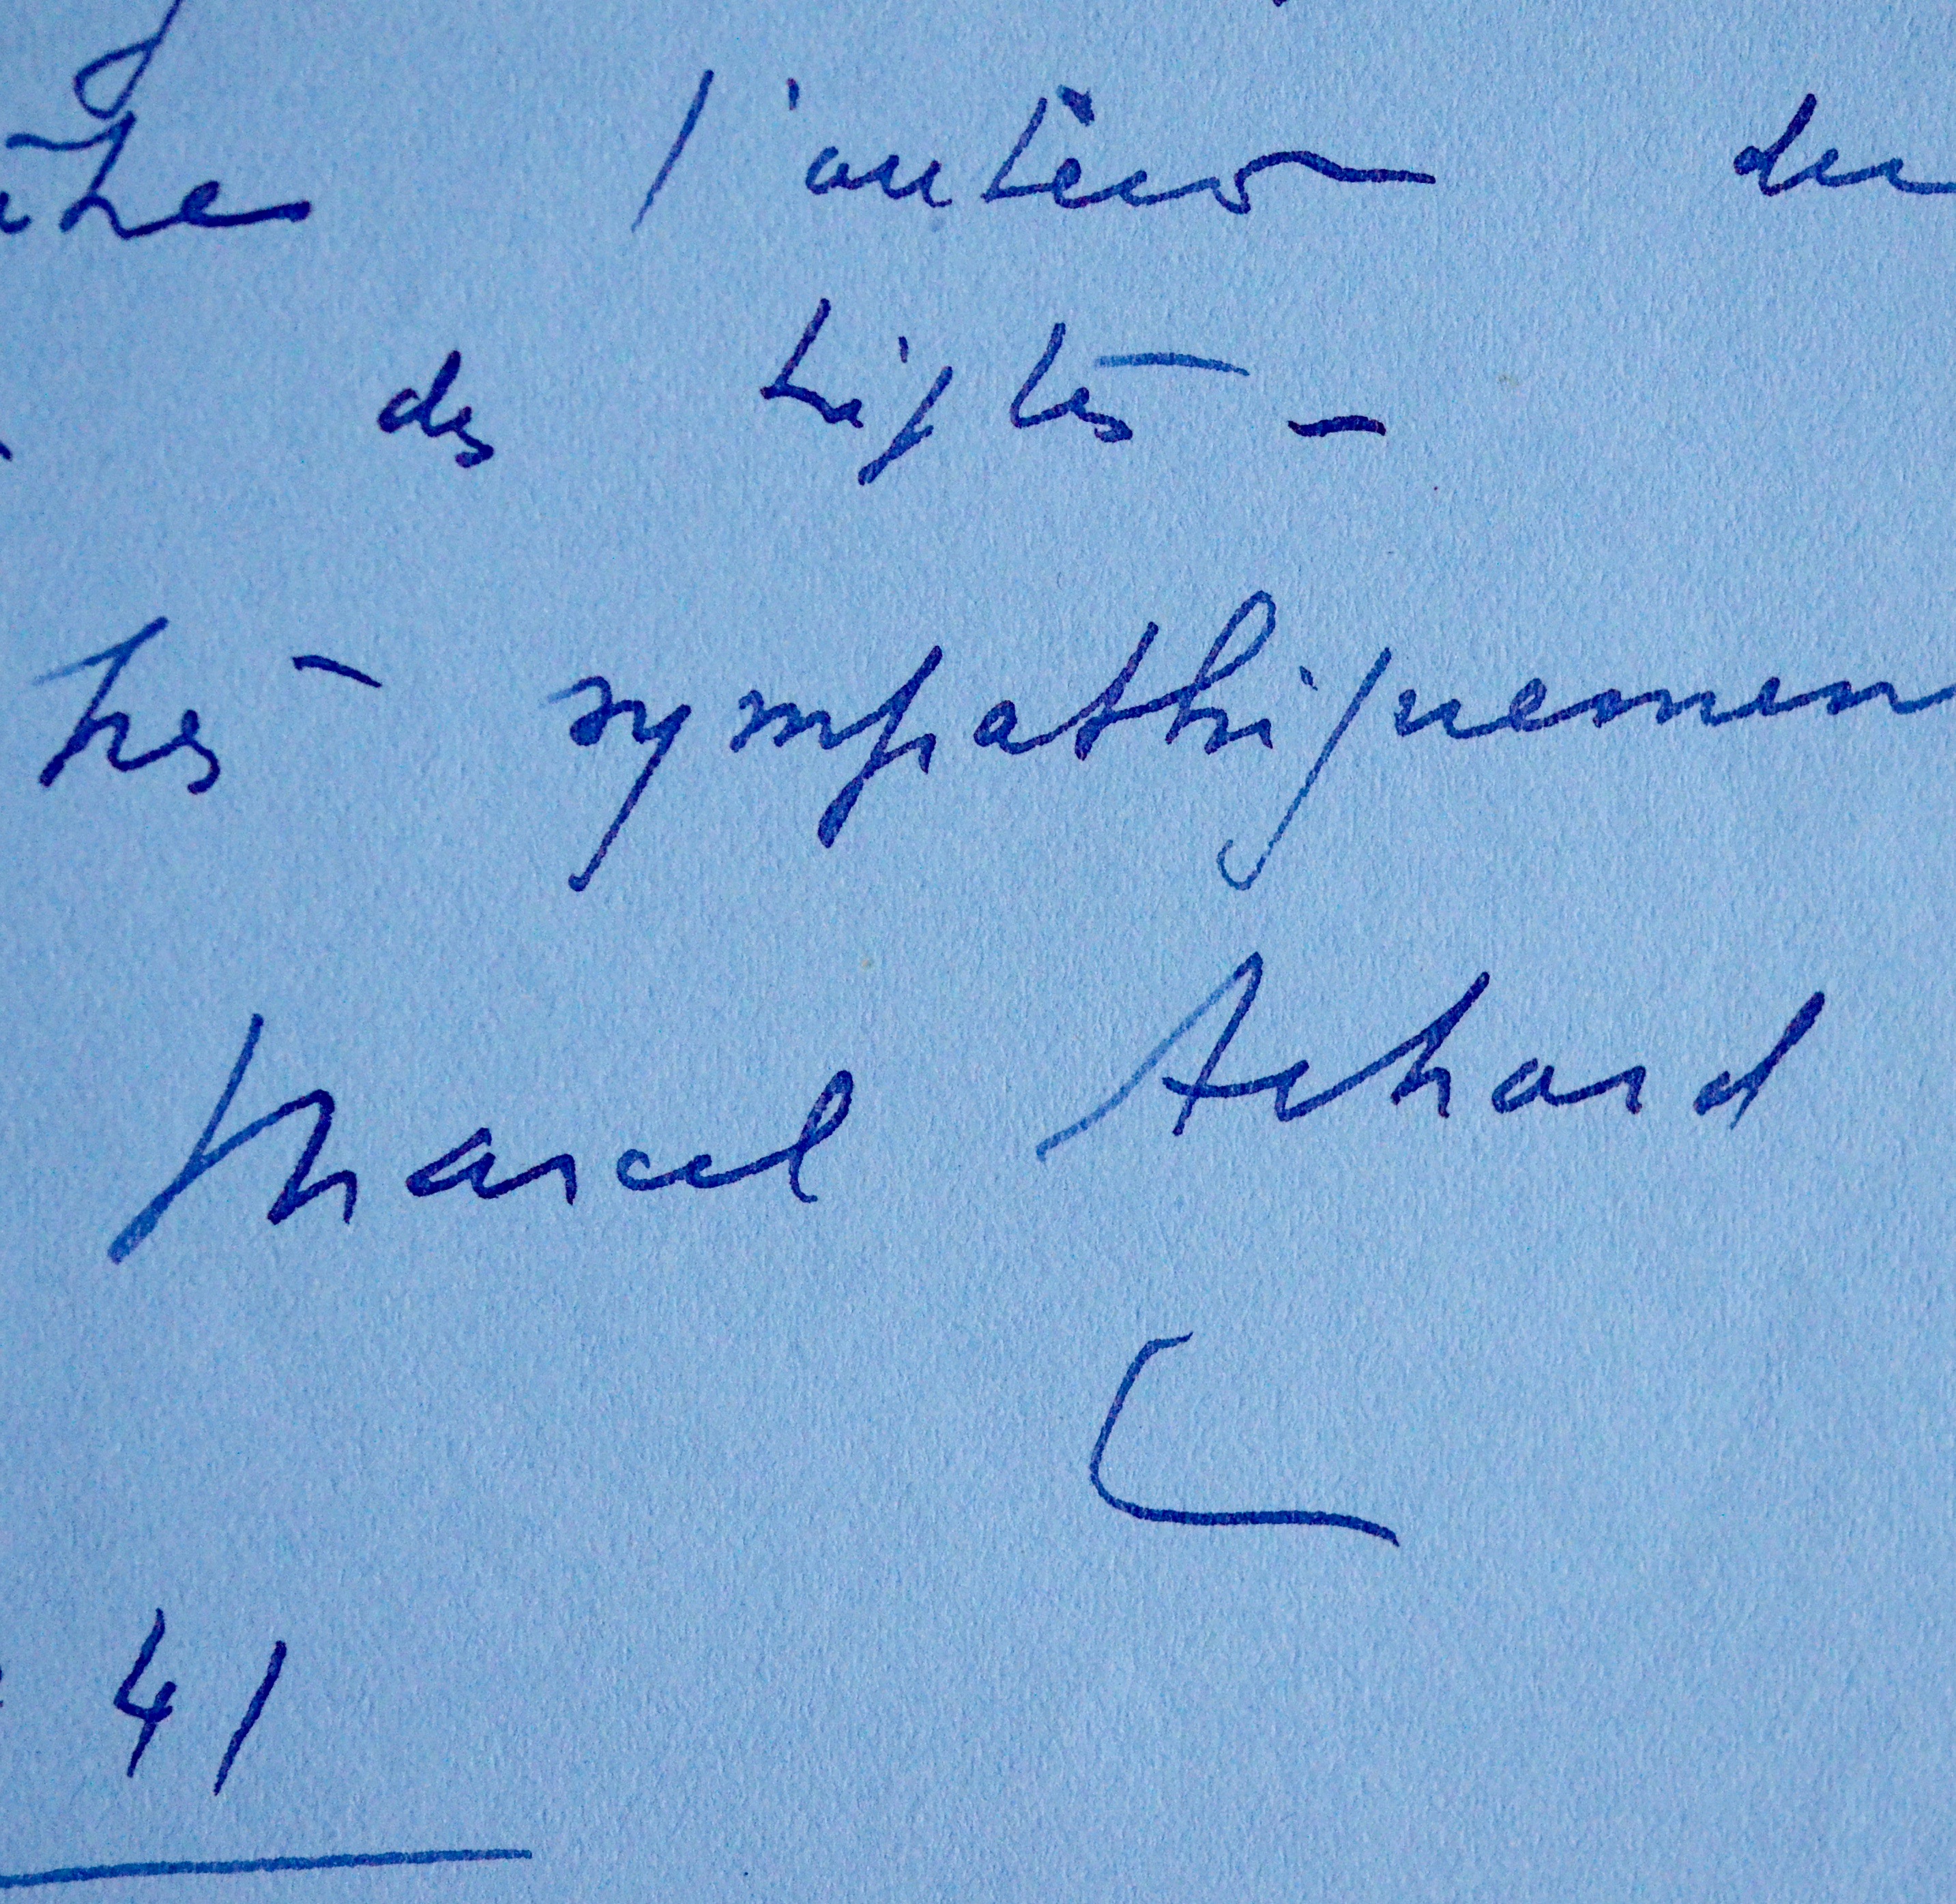 l'auteur du
des
très sympathiquemen
Marcel Achard
41